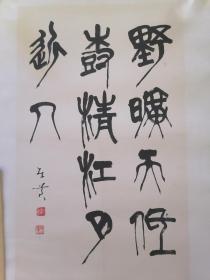 野曠天低
樹清江月
近人